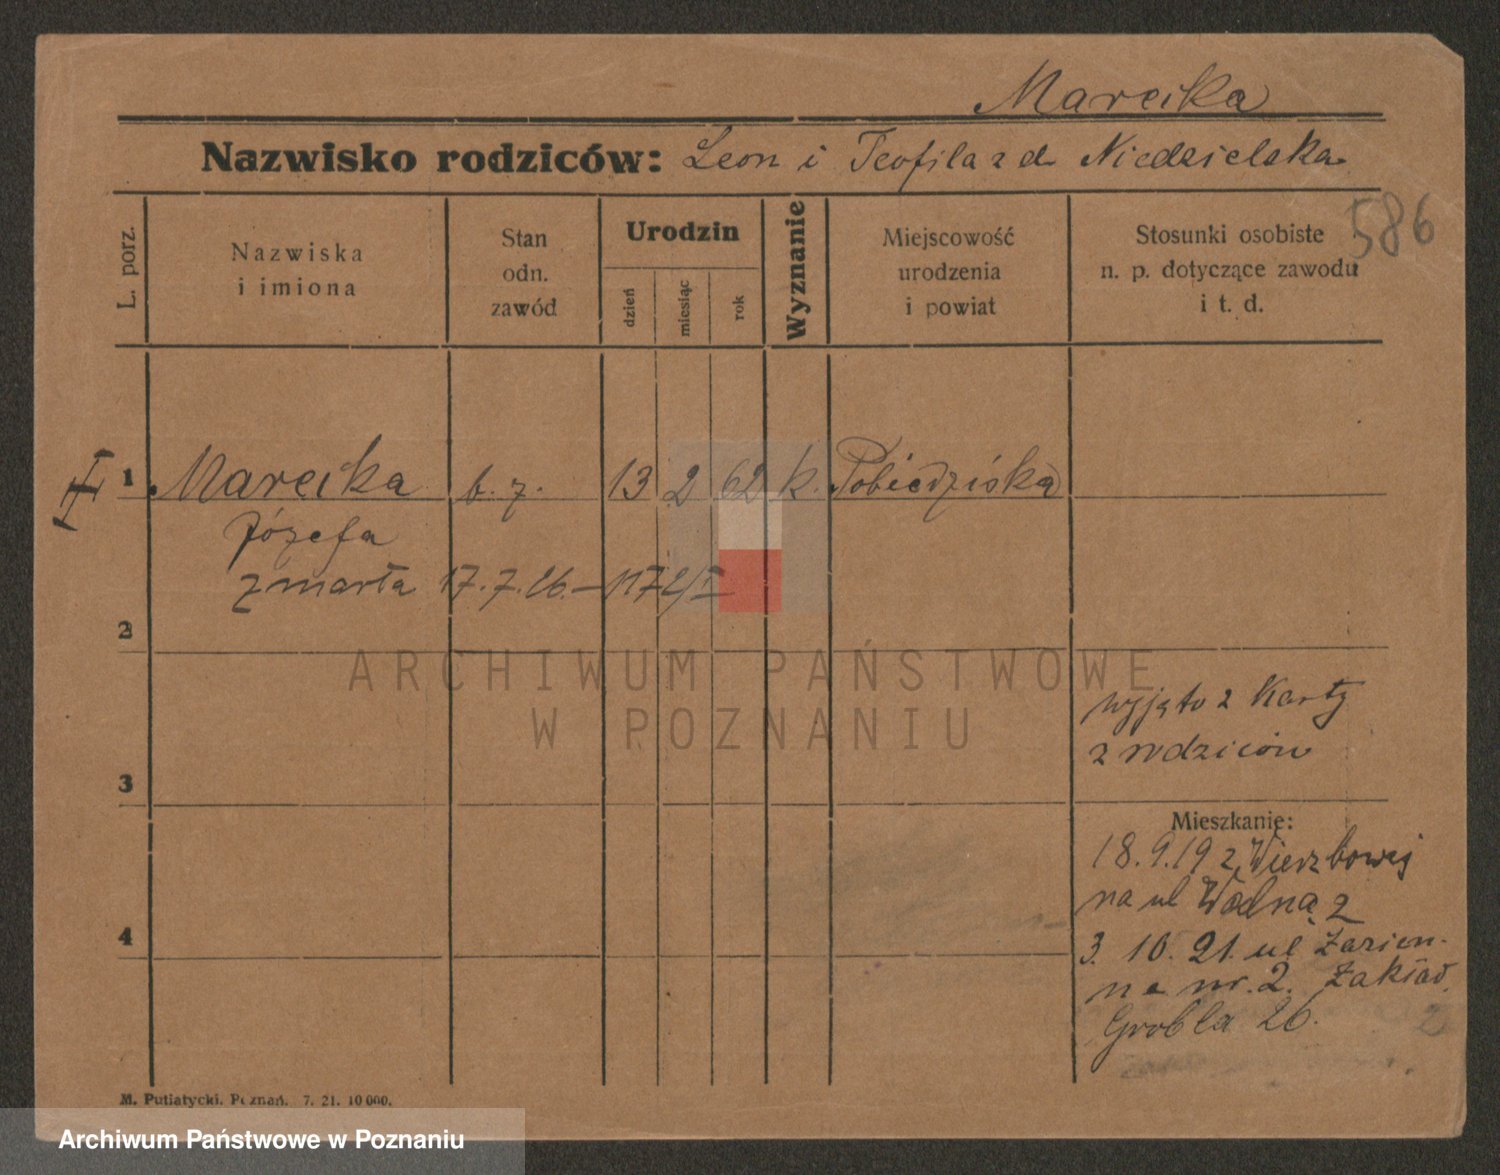 Marcika
Nazwisko rodziców: Leon i Teofila z d Niedzielska
586
L. porz.
Nazwiska
i imiona
Stan
odn.
zawód
Urodzin
dzień
miesiąc
rok
Wyznanie
Miejscowość
urodzenia
i powiat
Stosunki osobiste
n. p. dotyczące zawodu
i t. d.
1 Marcika b. z. 13 2 62 k. Pobiedziska
Józefa
zmarła 17.7.26. – 1172/I
2
ARCHIWUM PAŃSTWOWE
W POZNANIU
wyjęto z Karty
z rodziców
3
Mieszkanie:
18.9.19 z Wierzbowej
na ul Wodną 2
4
3. 10. 21. ul
na nr. 2. Zakład
Grobla 26.
M. Putiatycki. Poznań. 7. 21. 10 000.
Archiwum Państwowe w Poznaniu